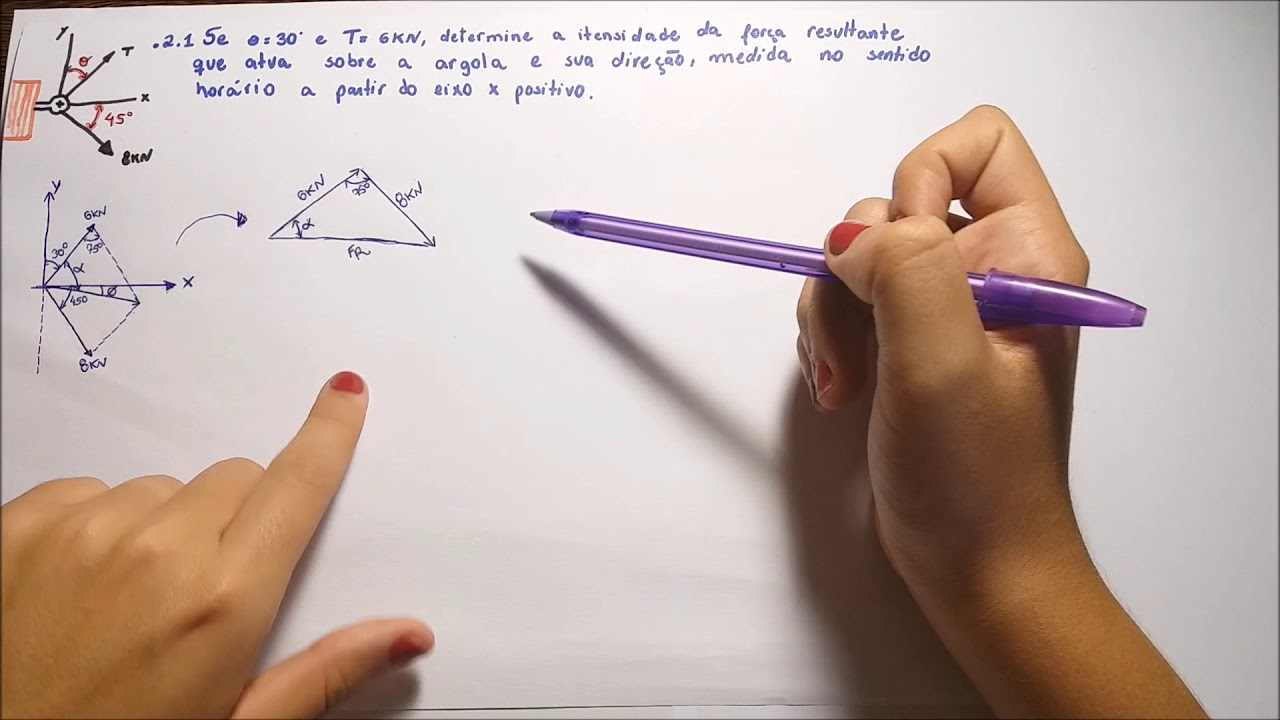 .2.1 Se θ=30° e T= 6KN, determine a itensidade da força resultante
que atua sobre a argola e sua direção, medida no sentido
horário a partir do eixo x positivo.
y
θ
T
x
45°
8KN
y
6KN
30°
75°
α
x
450
Ø
8KN
6KN
75°
8KN
α
FR